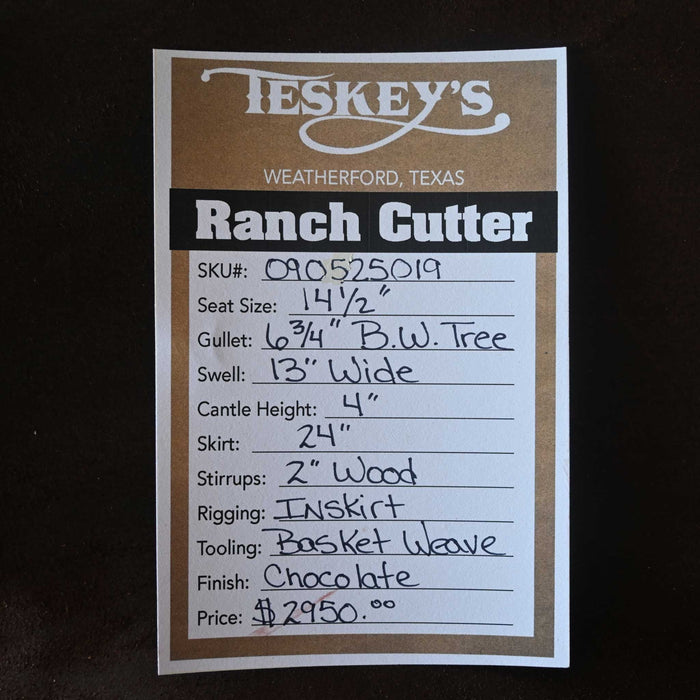 TESKEY'S
WEATHERFORD, TEXAS
Ranch Cutter
SKU#: 090525019
Seat Size: 14 1/2"
Gullet: 6 3/4" B.W. Tree
Swell: 13" Wide
Cantle Height: 4"
Skirt: 24"
Stirrups: 2" Wood
Rigging: Inskirt
Tooling: Basket Weave
Finish: Chocolate
Price: $2950.00